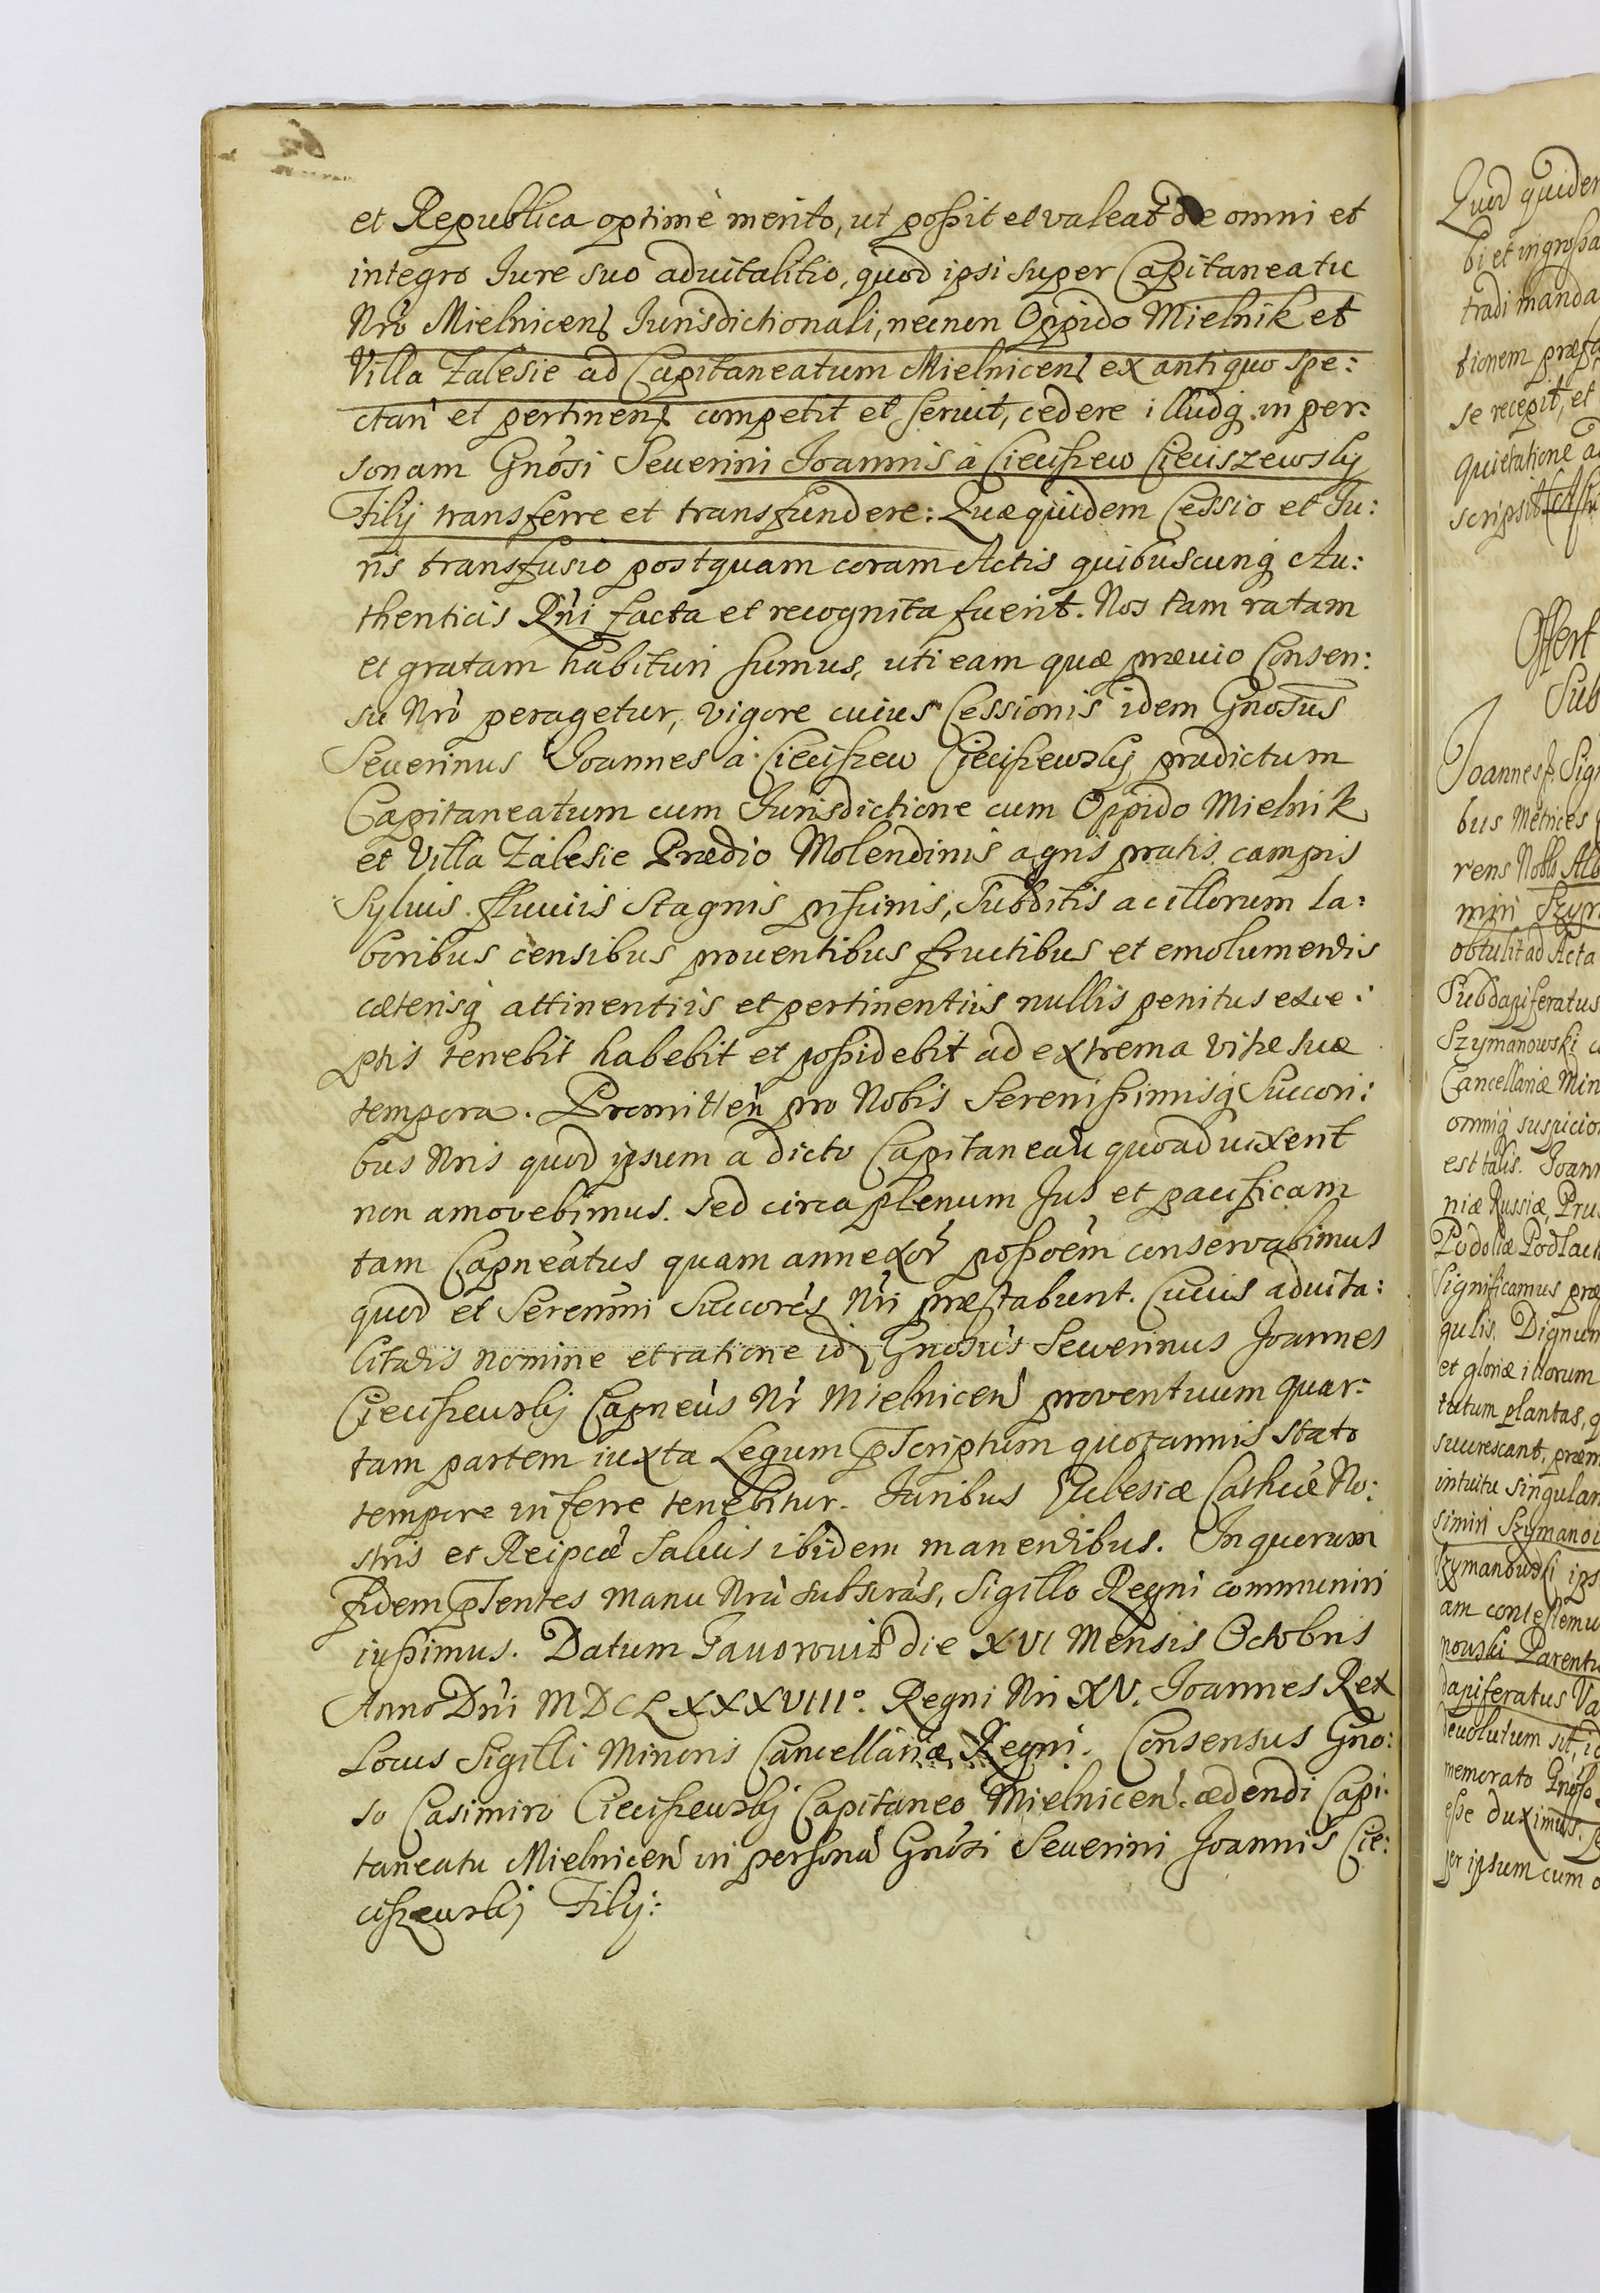 et Republica optimè merito, ut poßit et valeat de omni et
integro Jure suo aduitalitio, quod ipsi super Capitaneatu
Nrõ Mielnicen Jurisdictionali, necnon Oppido Mielnik et
Villa Zalesie ad Capitaneatum Mielnicen ex antiquo spe:
ctan et pertinen competit et seruit, cedere illudq in per:
sonam Gnosi Seuerini Joannis à Cieciszew Cieciszewsky
Filij transferre et transfundere: Quæquidem Cessio et Ju:
ris transfusio postquam coram Actis quibuscunq Au:
thenticis Rni facta et recognita fuerit. Nos tam ratam
et gratam habituri sumus, uti eam quæ præuio Consen:
su Nrò peragetur, vigore cuius Cessionis idem Gnosus
Seuerinus Joannes à Cieciszew Cieciszewsky prædictum
Capitaneatum cum Jurisdictione cum Oppido Mielnik
et Villa Zalesie Prædio Molendinis agris pratis campis
Syluis fluuiis Stagnis piscinis, Subditis ac illorum la:
boribus censibus prouentibus fructibus et emolumentis
cæterisq attinentiis et pertinentiis nullis penitus exce:
ptis tenebit habebit et poßidebit ad extrema vitæ suæ
tempora. Promitten pro Nobis Serenißimisq Succori:
bus Nris quod ipsum a dicto Capitaneatu quoad uixerit
non amovebimus. sed circa plenum Jus et pacificam
tam Capneatus quam annexor poßoem conservabimus
quod et Serenmi Succores Nri præstabunt. Cuius aduita:
litatis nomine et ratione id Gnosus Sewerinus Joannes
Cieciszewsky Capneus Nr Mielnicen proventuum quar:
tam partem iuxta Legum pscriptum quotannis stato
tempore inferre tenebitur. Juribus Ecclesiæ Cathcæ No:
stris et Reipcæ Saluis ibidem manentibus. In quorum
fidem pntes manu Nra subscras, Sigillo Regni communiri
iußimus. Datum Jauorouiæ die XVI Mensis Octobris
Anno Dni MDCLXXXVIII°. Regni Nri XV. Joannes Rex
Locus Sigilli Minoris Cancellariæ Regni. Consensus Gno:
so Casimiro Cieciszewsky Capitaneo Mielnicen. cedendi Capi:
taneatu Mielnicen in personâ Gnosi Seuerini Joannis Cie:
ciszewsky Filij:
Quod quidem
bi et ingroßa
tradi manda
tionem præfa
se recepit, et
quietatione
scripsit
Offert
Sub
Joannes
bus Metrices
rens Nobls Alb
miri Szym
obtulit ad Acta
Subdapiferatus
Szymanowski
Cancellariæ Min
omniq suspicio
est talis. Joan
niæ Russiæ, Pru
Podoliæ Podlach
Significamus præ
gulis. Dignum
et gloriæ illorum
tutum plantas, q
succrescant, præm
intuitu singular
simiri Szymano
Szymanowski ips
am contestemu
nowski Parentu
dapiferatus Va
devolutum sit, id
memorato Gnoso
eße duximus.
per ipsum cum